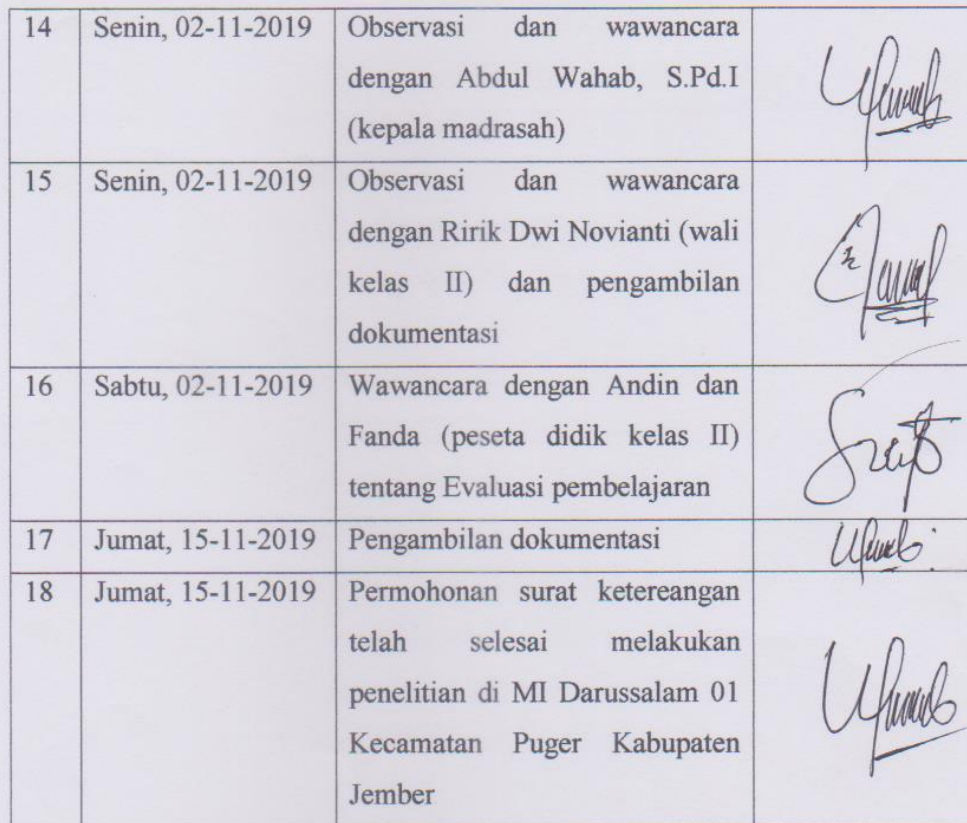 14 Senin, 02-11-2019 Observasi dan wawancara
dengan Abdul Wahab, S.Pd.I
(kepala madrasah)
15 Senin, 02-11-2019 Observasi dan wawancara
dengan Ririk Dwi Novianti (wali
kelas II) dan pengambilan
dokumentasi
16 Sabtu, 02-11-2019 Wawancara dengan Andin dan
Fanda (peseta didik kelas II)
tentang Evaluasi pembelajaran
17 Jumat, 15-11-2019 Pengambilan dokumentasi
18 Jumat, 15-11-2019 Permohonan surat ketereangan
telah selesai melakukan
penelitian di MI Darussalam 01
Kecamatan Puger Kabupaten
Jember